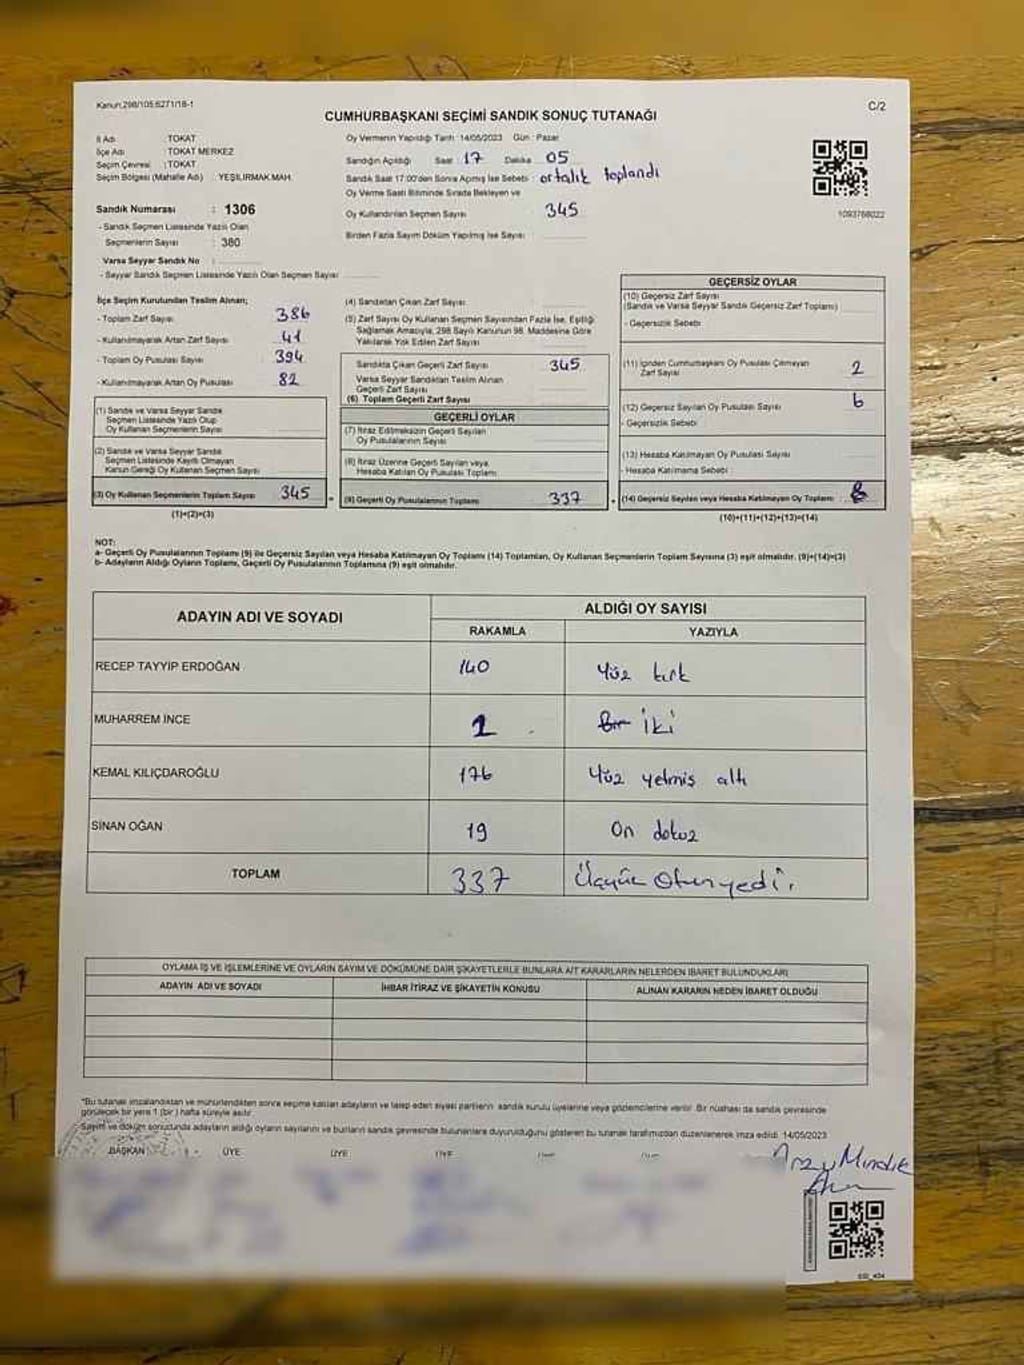 Kanun,298/105,6271/18-1
C/2
CUMHURBAŞKANI SEÇİMİ SANDIK SONUÇ TUTANAĞI
İl Adı : TOKAT
İlçe Adı : TOKAT MERKEZ
Seçim Çevresi : TOKAT
Seçim Bölgesi (Mahalle Adı) : YEŞİLIRMAK MAH.
Sandık Numarası : 1306
- Sandık Seçmen Listesinde Yazılı Olan
Seçmenlerin Sayısı : 380
Varsa Seyyar Sandık No :
- Seyyar Sandık Seçmen Listesinde Yazılı Olan Seçmen Sayısı
Oy Vermenin Yapıldığı Tarih : 14/05/2023 Gün : Pazar
Sandığın Açıldığı Saat 17 Dakika 05
Sandık Saat 17:00'den Sonra Açılmış İse Sebebi : ortalık toplandı
Oy Verme Saati Bitiminde Sırada Bekleyen ve
Oy Kullandırılan Seçmen Sayısı 345
Birden Fazla Sayım Döküm Yapılmış İse Sayısı
1093768022
İlçe Seçim Kurulundan Teslim Alınan;
- Toplam Zarf Sayısı 386
- Kullanılmayarak Artan Zarf Sayısı 41
- Toplam Oy Pusulası Sayısı 394
- Kullanılmayarak Artan Oy Pusulası 82
(1) Sandık ve Varsa Seyyar Sandık
Seçmen Listesinde Kayıtlı Olup
Oy Kullanan Seçmenlerin Sayısı
(2) Sandık ve Varsa Seyyar Sandık
Seçmen Listesinde Kayıtlı Olmayan
Kanun Gereği Oy Kullanan Seçmen Sayısı
(3) Oy Kullanan Seçmenlerin Toplam Sayısı 345
(1)+(2)=(3)
(4) Sandıktan Çıkan Zarf Sayısı
(5) Zarf Sayısı Oy Kullanan Seçmen Sayısından Fazla İse, Eşitliği
Sağlamak Amacıyla, 298 Sayılı Kanunun 98. Maddesine Göre
Yakılarak Yok Edilen Zarf Sayısı
Sandıkta Çıkan Geçerli Zarf Sayısı 345
Varsa Seyyar Sandıktan Teslim Alınan
Geçerli Zarf Sayısı
(6) Toplam Geçerli Zarf Sayısı
GEÇERLİ OYLAR
(7) İtiraz Edilmeksizin Geçerli Sayılan
Oy Pusulalarının Sayısı
(8) İtiraz Üzerine Geçerli Sayılan veya
Hesaba Katılan Oy Pusulası Toplamı
(9) Geçerli Oy Pusulalarının Toplamı 337
GEÇERSİZ OYLAR
(10) Geçersiz Zarf Sayısı
(Sandık ve Varsa Seyyar Sandık Geçersiz Zarf Toplamı)
- Geçersizlik Sebebi
(11) İçinden Cumhurbaşkanı Oy Pusulası Çıkmayan
Zarf Sayısı 2
(12) Geçersiz Sayılan Oy Pusulası Sayısı 6
- Geçersizlik Sebebi
(13) Hesaba Katılmayan Oy Pusulası Sayısı
- Hesaba Katılmama Sebebi :
(14) Geçersiz Sayılan veya Hesaba Katılmayan Oy Toplamı 8
(10)+(11)+(12)+(13)=(14)
NOT:
a- Geçerli Oy Pusulalarının Toplamı (9) ile Geçersiz Sayılan veya Hesaba Katılmayan Oy Toplamı (14) Toplamları, Oy Kullanan Seçmenlerin Toplam Sayısına (3) eşit olmalıdır. (9)+(14)=(3)
b- Adayların Aldığı Oyların Toplamı, Geçerli Oy Pusulalarının Toplamına (9) eşit olmalıdır.
ADAYIN ADI VE SOYADI ALDIĞI OY SAYISI
RAKAMLA YAZIYLA
RECEP TAYYİP ERDOĞAN 140 Yüz kırk
MUHARREM İNCE 2 Bir İki
KEMAL KILIÇDAROĞLU 176 Yüz yetmiş altı
SİNAN OĞAN 19 On dokuz
TOPLAM 337 Üçyüz Otuzyedi.
OYLAMA İŞ VE İŞLEMLERİNE VE OYLARIN SAYIM VE DÖKÜMÜNE DAİR ŞİKAYETLERLE BUNLARA AİT KARARLARIN NELERDEN İBARET BULUNDUKLARI
ADAYIN ADI VE SOYADI İHBAR İTİRAZ VE ŞİKAYETİN KONUSU ALINAN KARARIN NEDEN İBARET OLDUĞU
*Bu tutanak imzalandıktan ve mühürlendikten sonra seçime katılan adayların ve talep eden siyasi partilerin sandık kurulu üyelerine veya gözlemcilerine verilir. Bir nüshası da sandık çevresinde
görülecek bir yere 1 (bir) hafta süreyle asılır.
Sayım ve döküm sonucunda adayların aldığı oyların sayılarını ve bunların sandık çevresinde bulunanlara duyurulduğunu gösteren bu tutanak tarafımızdan düzenlenerek imza edildi. 14/05/2023
BAŞKAN ÜYE ÜYE ÜYE
Arzu Mındık